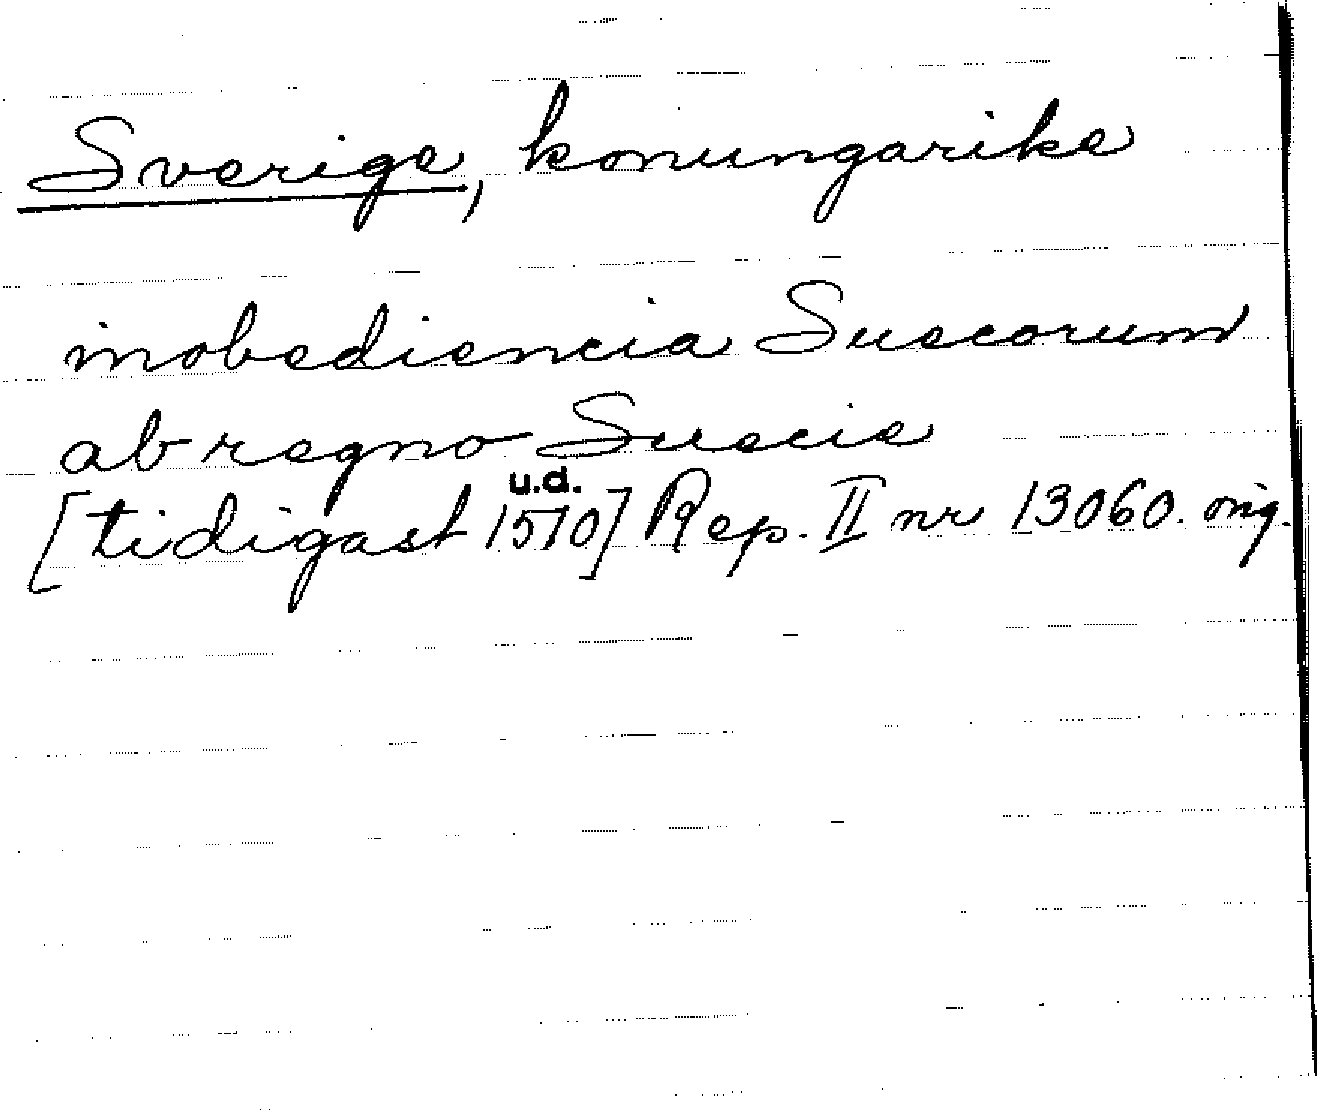 Sverige, konungarike
inobediencia Suecorum
ab regno Suecie
u.d.
[tidigast 1510] Rep. II nr 13060. orig.